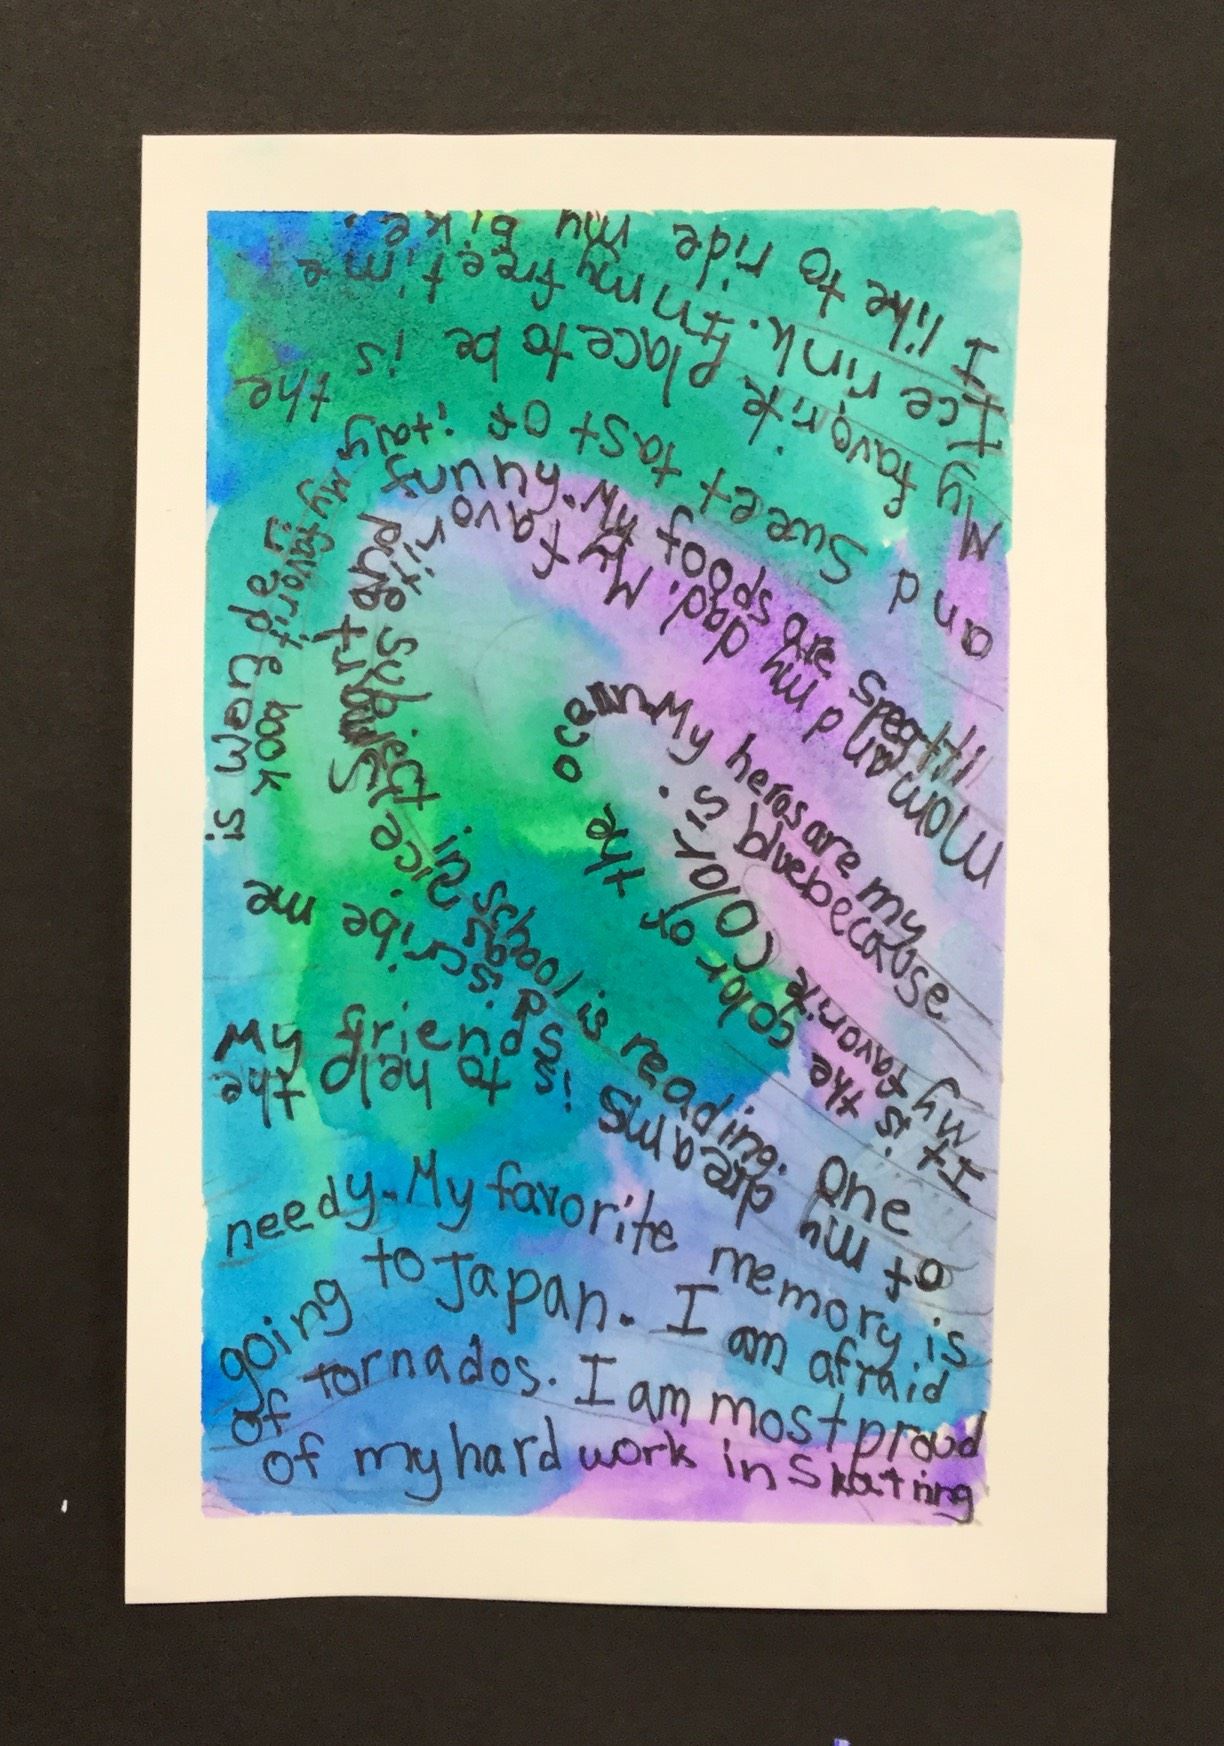 I like to ride my bike.
Ice rink. In my free time
My favorite place to be is the
and Sweet tast of italy. My favorite book is
My friends discribe me as nice smart and funny. My
My heros are my
Mom and my dad. My favorite sybject is reading. One
my favorite color is. blue because
It is the color of the ocean
of my dreams is to help the
needy. My favorite memory is
going to Japan. I am afraid
of tornados. I am most proud
of my hard work in skating